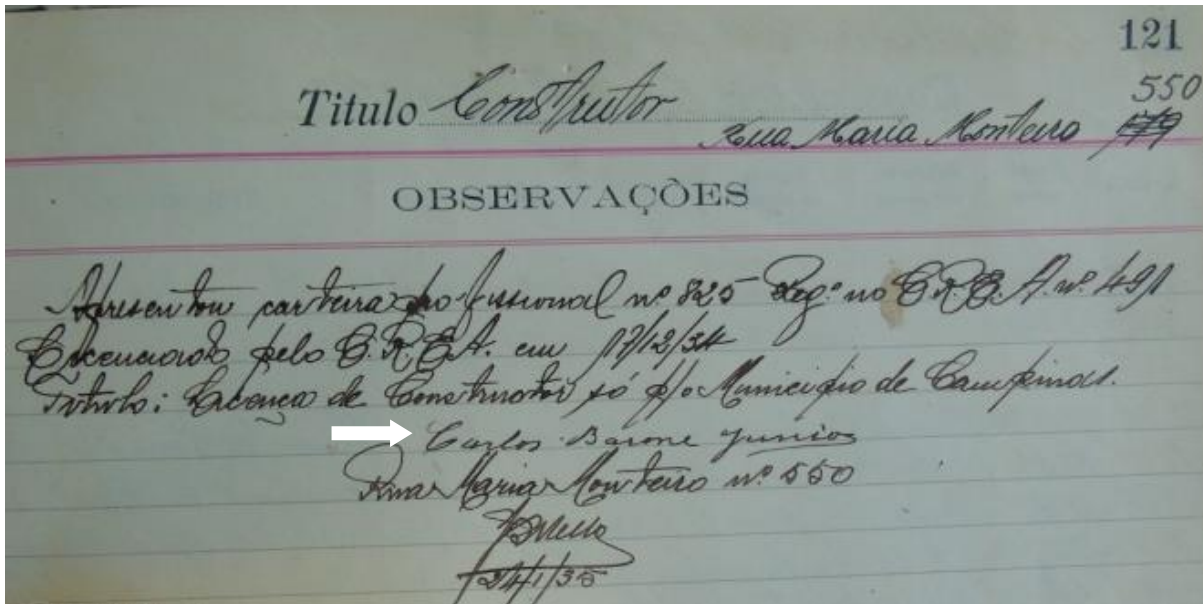 121
Titulo Constructor
550
Rua Maria Monteiro 579
OBSERVAÇÕES
Apresentou carteira profissional nº 825 Reg.º no C.R.E.A. nº 491
Licenciado pelo C.R.E.A. em 17/12/34
Titulo: Licença de Constructor só p/o Municipio de Campinas.
Carlos Barone Junior
Rua Maria Monteiro nº 550
24/1/35